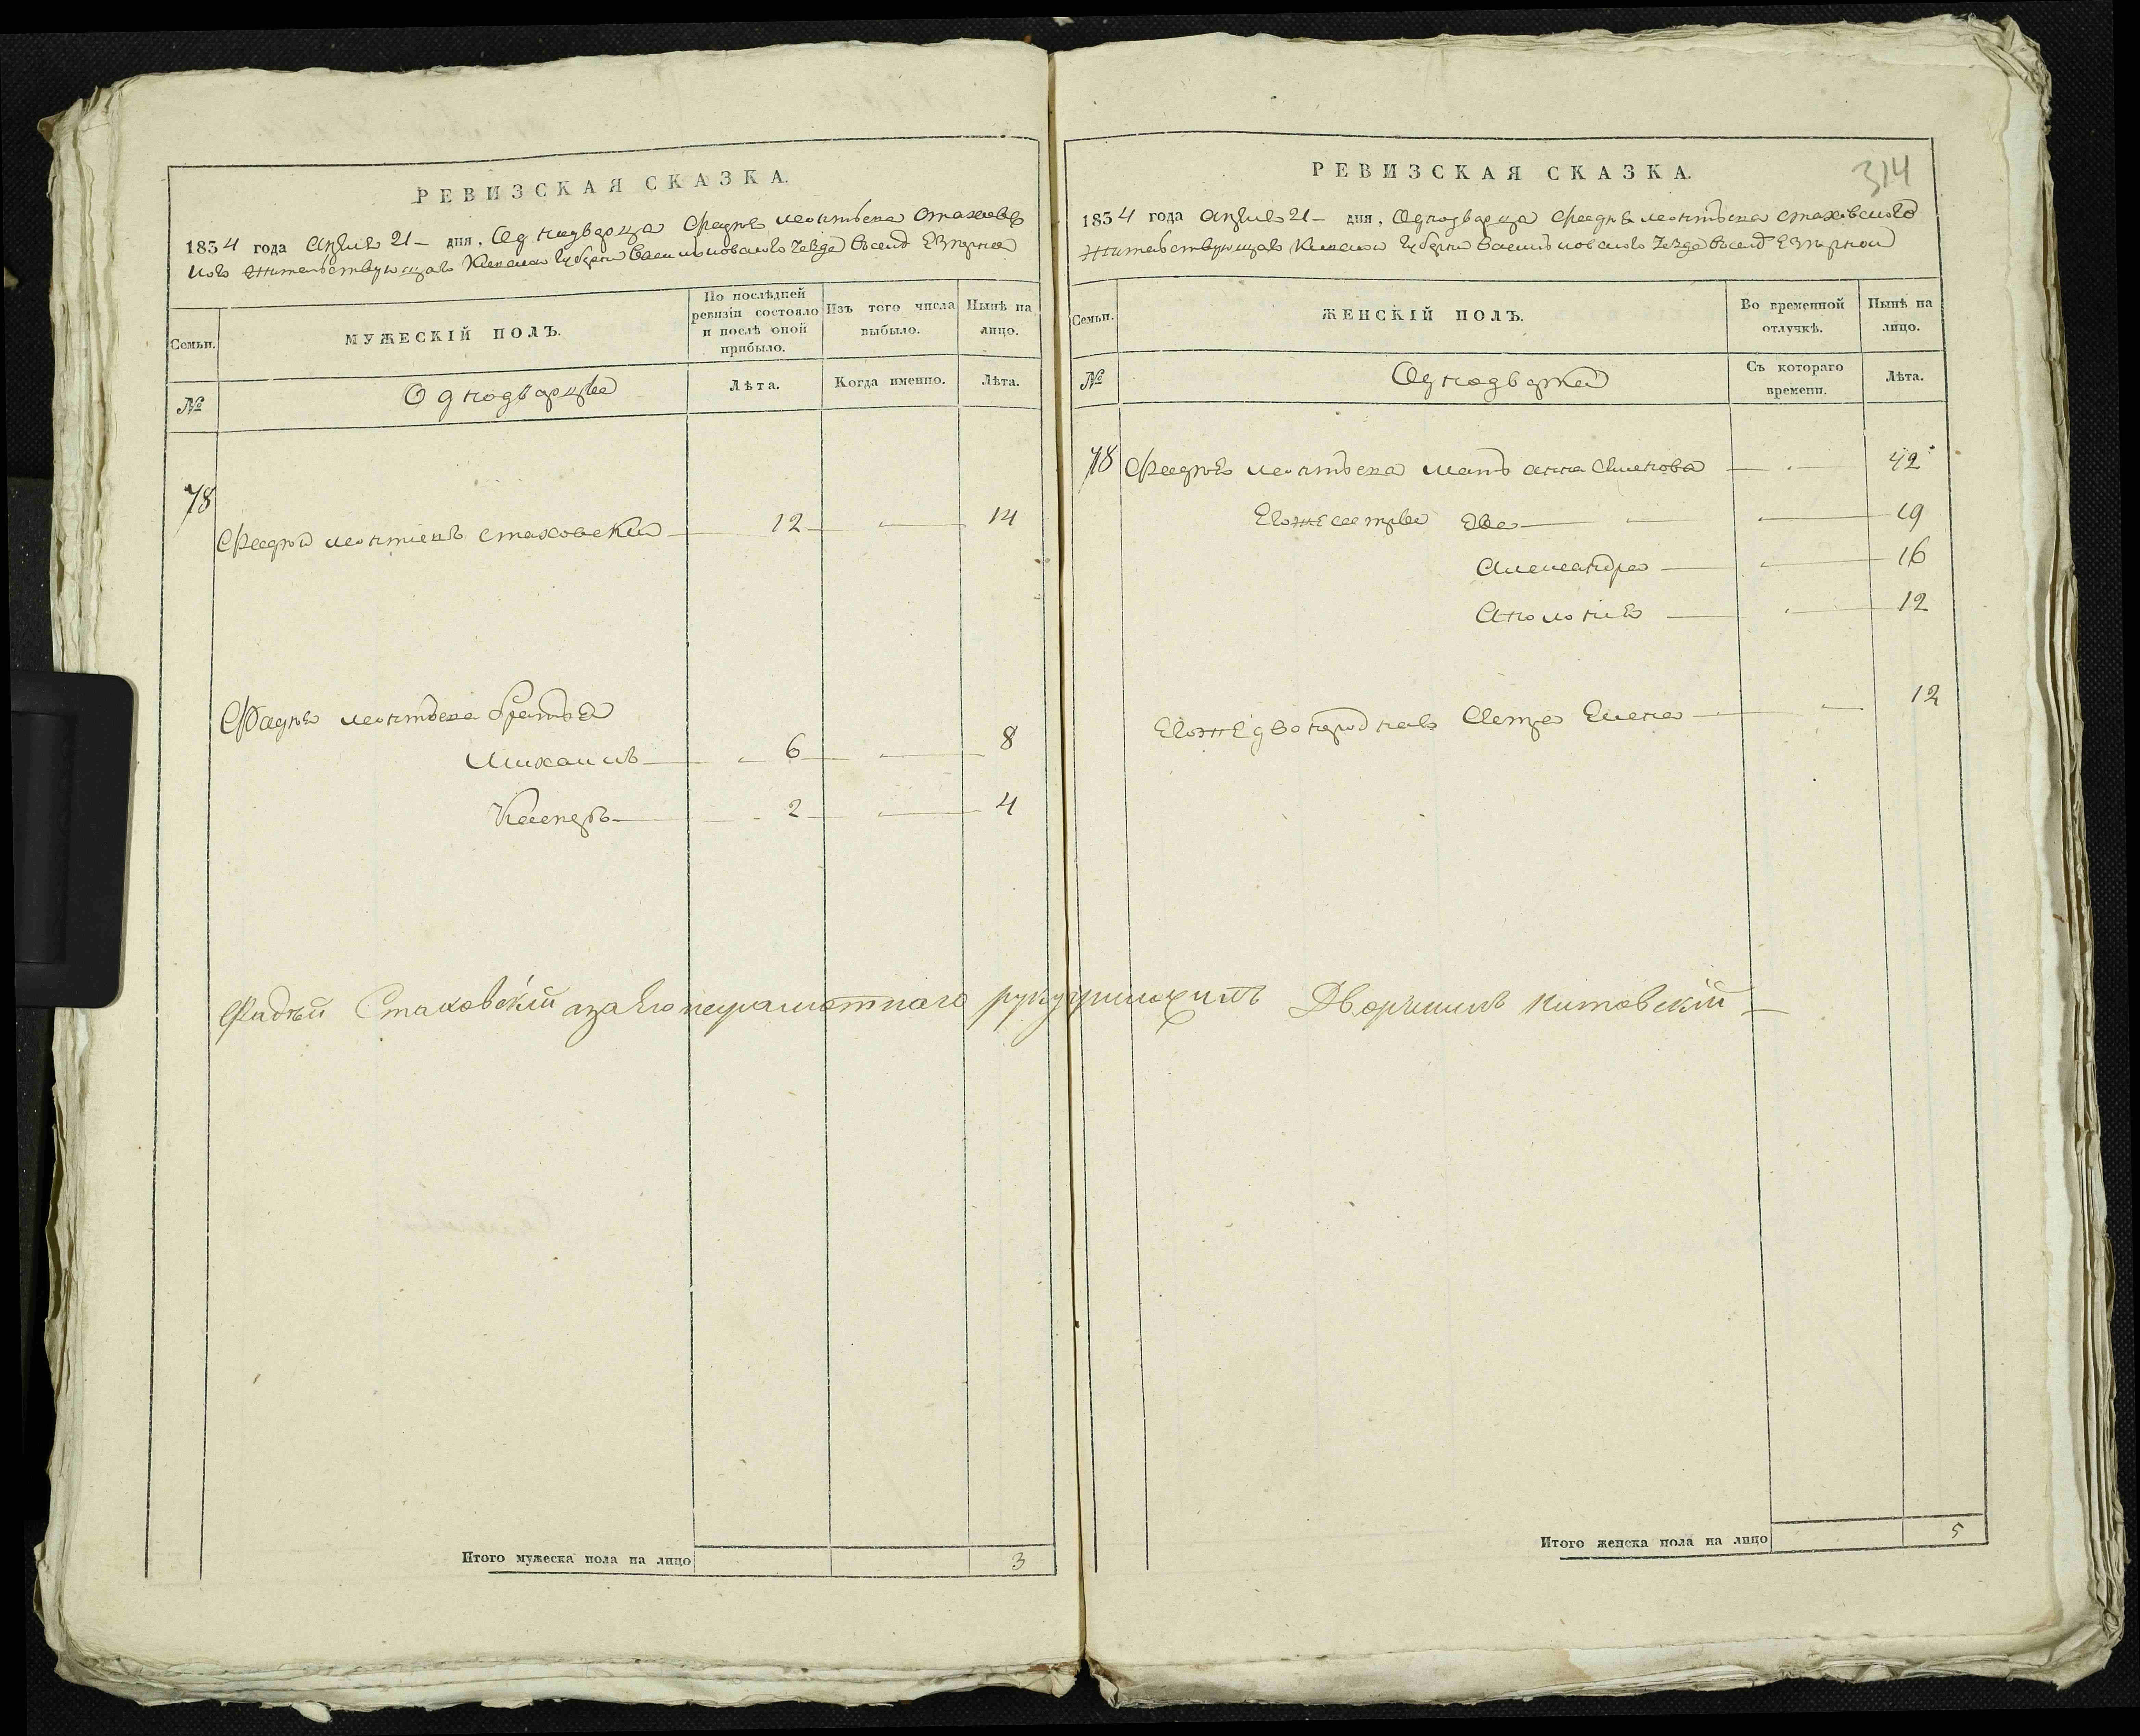 РЕВИЗСКАЯ СКАЗКА.
1834 года Апреля 21 – дня, Однодворца Фадея Леонтьева Стаховс
кого Жительствующаго Киевской Губернии Васильковского Уезда в селе
Семьи.
МУЖЕСКІЙ ПОЛЪ.
По послѣдней ревизіи состояло и послѣ оной прибыло.
Изъ того числа выбыло.
Нынѣ на лицо.
№
Однодворцы
Лѣта.
Когда именно.
Лѣта.
78
Фадей Леонтіевъ Стаховский 12 14
Фадея Леонтьева братья
Михаилъ 6 8
Касперъ 2 4
Итого мужеска пола на лицо 3
314
РЕВИЗСКАЯ СКАЗКА.
1834 года Апреля 21 – дня, Однодворца Фадея Леонтьева Стаховского
Жительствующаго Киевской Губернии Васильковского Уезда в селе
Семьи.
ЖЕНСКІЙ ПОЛЪ.
Во временной отлучкѣ.
Нынѣ на лицо.
№
Однодворки
Съ котораго времени.
Лѣта.
78 Фадея Леонтьева мать анна 42
Егоже сестры Эва 19
Александра 16
Аполония 12
Егоже двоюродная Сестра Елена 12
Фадѣй Стаховскій а за Его неграмотнаго руку приложилъ Дворянинъ Китовскій
Итого женска пола на лицо 5